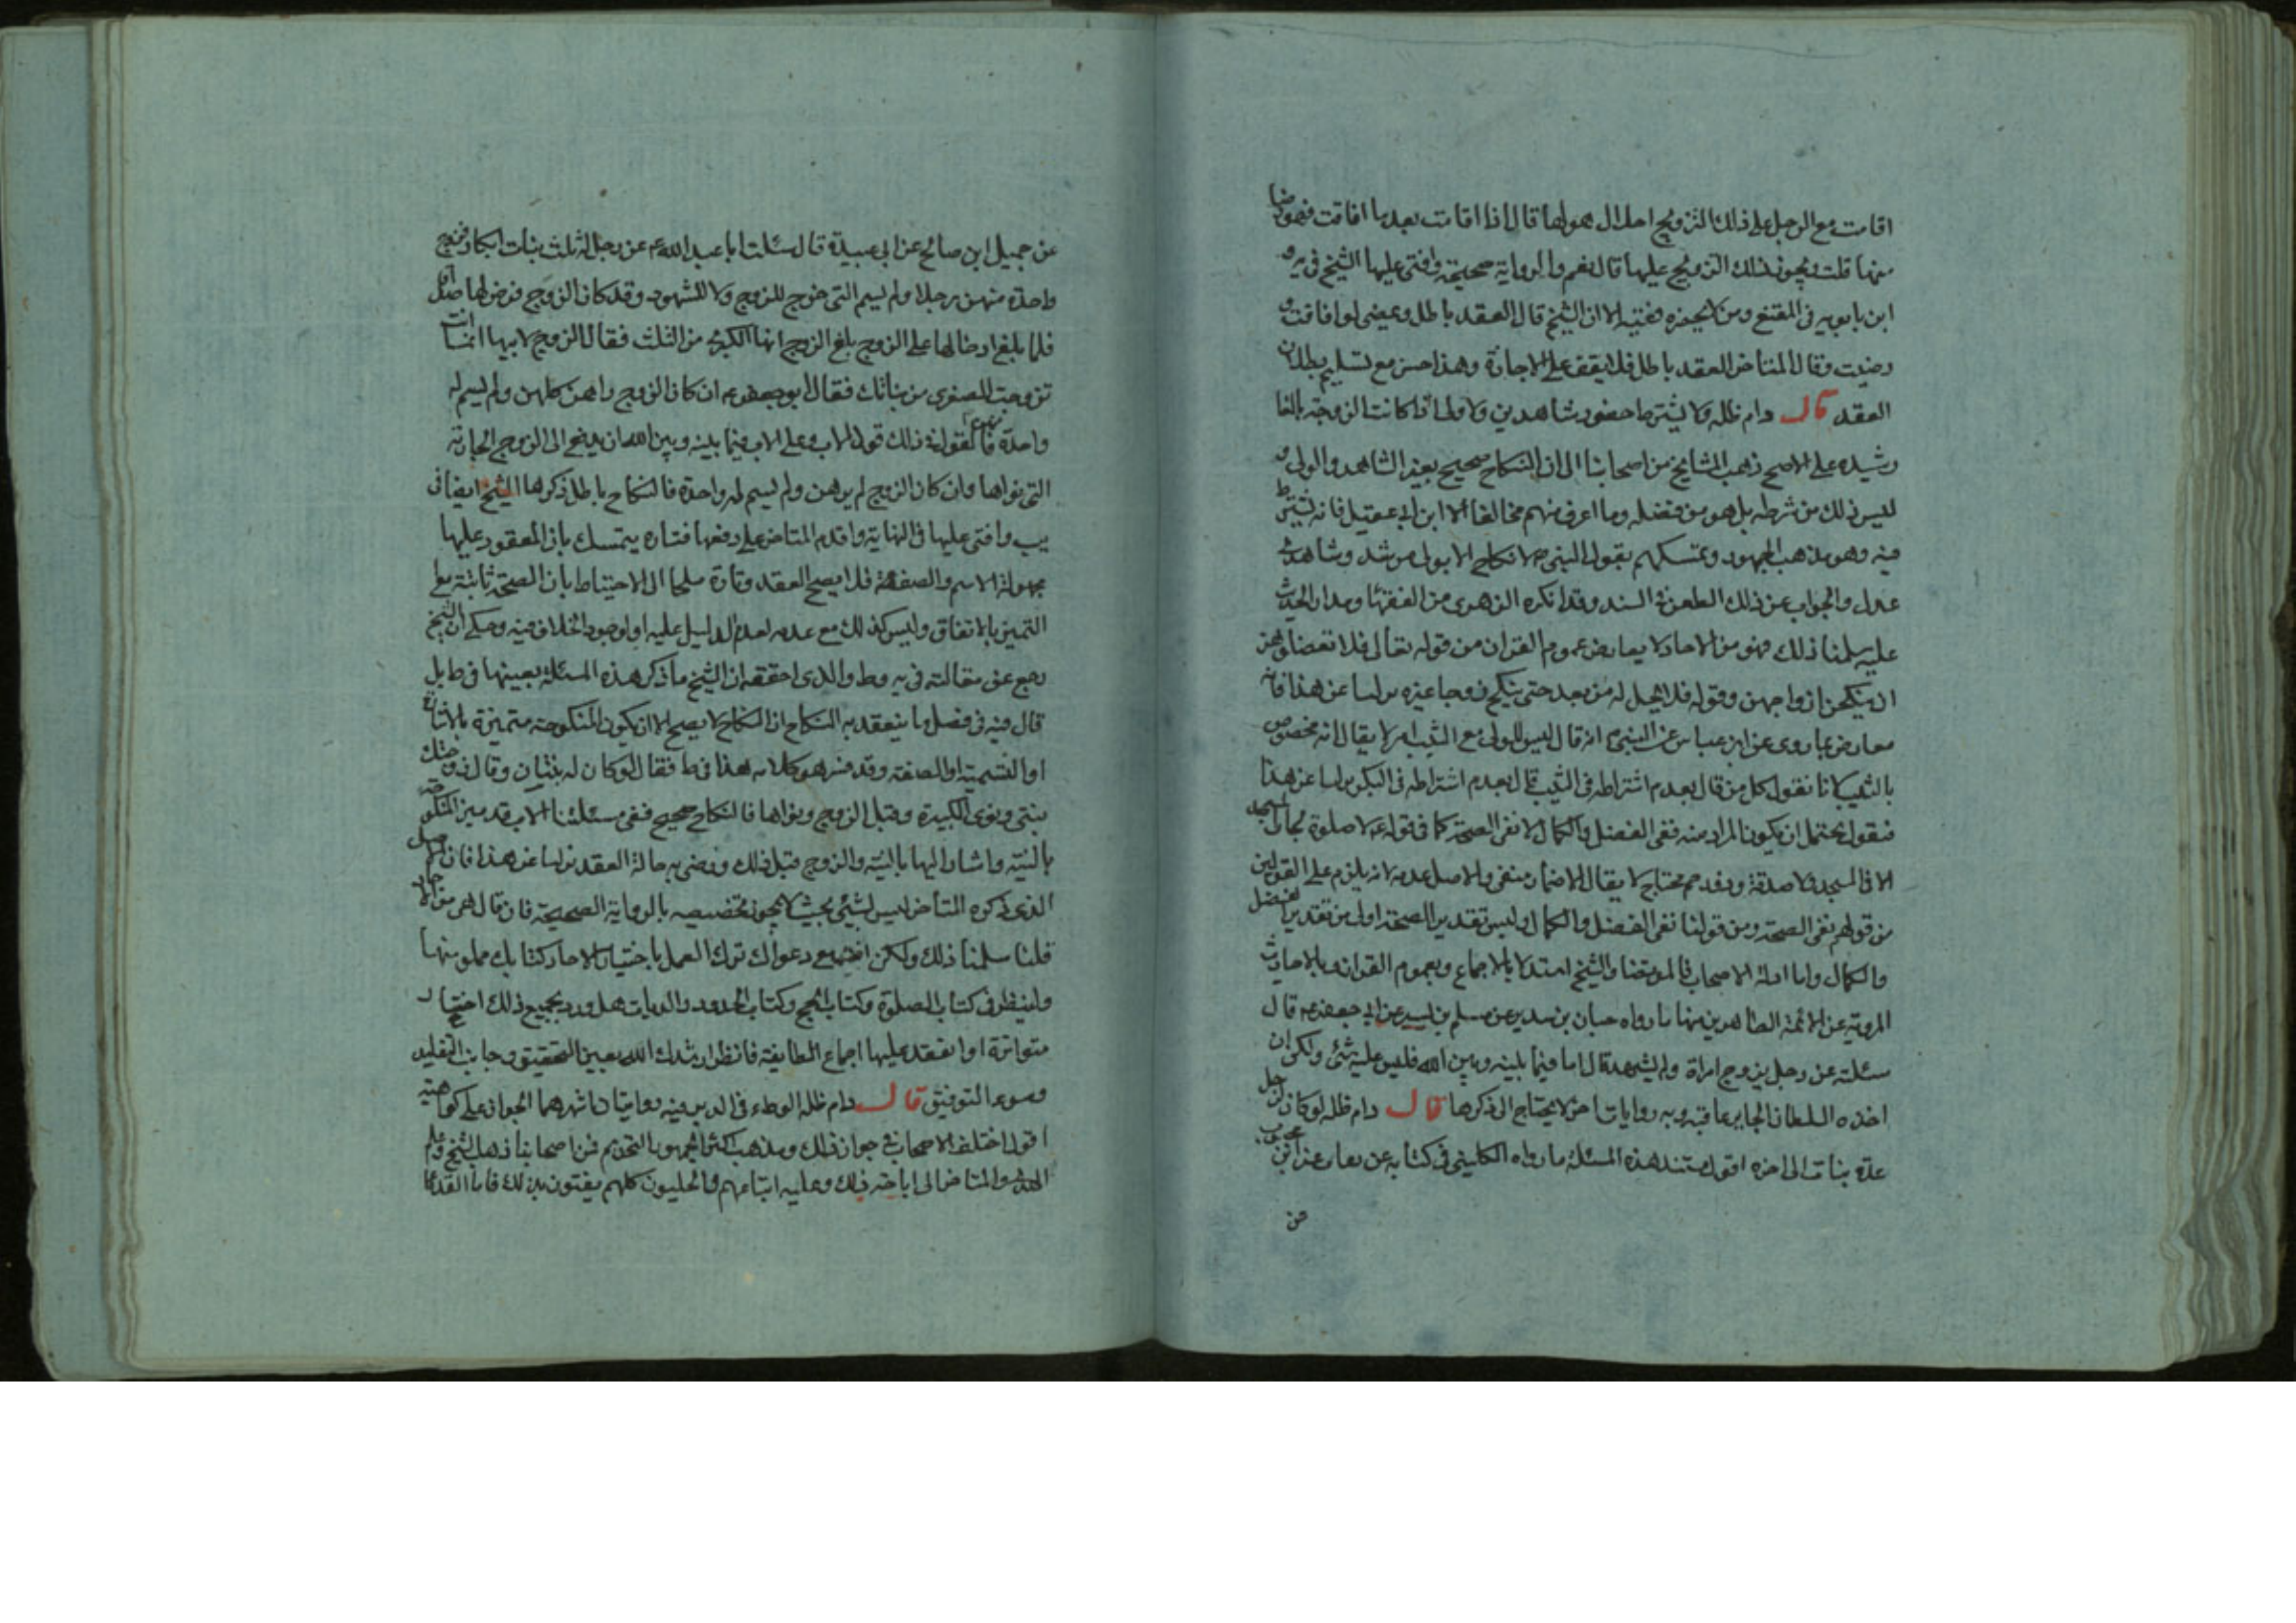 اقامت مع الرجل على ذلك التزويج احلال هو لها قال اذا اقامت بعد ما افاقت فهو رضا
منها قلت ويجوز ذلك التزويج عليها قال نعم والرواية صحيحة وافتى عليها الشيخ في يه و
ابن بابويه في المقنع ومن لا يحضره فقيه الا ان الشيخ قال العقد باطل ويمضى لو افاقت و
رضيت وقال المتاخر العقد باطل فلا يقف على الاجازة وهذا حسن مع تسليم بطلان
العقد قال دام ظله ولا يشترط حضور شاهدين ولا ولى اذا كانت الزوجة بالغا
رشيدة على الاصح ذهب المشايخ من اصحابنا الى ان النكاح صحيح بغير الشاهد والولى و
ليس ذلك من شرطه بل هو من فضله وما اعرف منهم مخالفا الا ابن ابى عقيل فانه يشترط
فيه وهو مذهب الجمهور وتمسكهم بقول النبى ص لا نكاح الا بولى مرشد وشاهدى
عدل والجواب عن ذلك الطعن في السند وقد انكره الزهرى من الفقها ومدار الحديث
عليه سلمنا ذلك فهو من الاحاد لا يعارض عموم القران من قوله تعالى فلا تعضلوهن
ان ينكحن ازواجهن وقوله فلا تحل له من بعد حتى تنكح زوجا غيره نزلنا عن هذا فانه
معارض بما روى عن ابن عباس عن النبى ص انه قال ليس للولى مع الثيب امر لا يقال انه مخصوص
بالثيب لانا نقول كل من قال بعدم اشتراطه في الثيب قال بعدم اشتراطه في البكر نزلنا عن هذا
فنقول يحتمل ان يكون المراد منه نفى الفضل والكمال لا نفى الصحة كما في قوله ع لا صلوة لجار المسجد
الا في المسجد ولا صدقة وذو رحم محتاج لا يقال الاضمار منفى والاصل عدمه لانه يلزم على القولين
من قولهم نفى الصحة ومن قولنا نفى الفضل والكمال وليس تقدير الصحة اولى من تقدير الفضل
والكمال واما ادلة الاصحاب فالمرتضى والشيخ استدلا بالاجماع وبعموم القران وبالاحاديث
المروية عن الائمة الطاهرين منها ما رواه حنان بن سدير عن مسلم بن بشير عن ابى جعفر ع قال
سئلته عن رجل يزوج امراة ولم يشهد قال اما فيما بينه وبين الله فليس عليه شئ ولكن ان
اخذه السلطان الجاير عاقبه وبه روايات اخر لا يحتاج الى ذكرها قال دام ظله لو كان للرجل
عدة بنات الى اخره اقول مستند هذه المسئلة ما رواه الكلينى في كتابه عن عن ابن محبوب
عن
عن جميل ابن صالح عن ابى عبيدة قال سئلت ابا عبد الله ع عن رجل له ثلث بنات ابكار فزوج
واحدة منهن رجلا ولم يسم التى زوج للزوج ولا للشهود وقد كان الزوج فرض لها صداقا
فلما بلغ ادخالها على الزوج بلغ الزوج انها الكبرى من الثلث فقال الزوج لابيها انما
تزوجت الصغرى من بناتك فقال ابو جعفر ع ان كان الزوج راهن كلهن ولم يسم له
واحدة فالقول في ذلك قول الاب وعلى الاب فيما بينه وبين الله ان يدفع الى الزوج الجارية
التى نواها وان كان الزوج لم يرهن ولم يسم له واحدة فالنكاح باطل ذكرها الشيخ ايضا في
يب وافتى عليها في النهاية واقدم المتاخر على دفعها فتارة يتمسك بان المعقود عليها
مجهولة الاسم والصفة فلا يصح العقد وتارة ملجا الى الاحتياط بان الصحة ثابتة مع
التميز بالاتفاق وليس كذلك مع عدمه لعدم الدليل عليه او لوجود الخلاف فيه وحكى ان الشيخ
رجع عن مقالته في يه وط والذى احققه ان الشيخ ما ذكر هذه المسئلة بعينها في ط بل
قال فيه في فصل ما ينعقد به النكاح ان النكاح لا يصح الا ان يكون المنكوحة متميزة بالاشارة
او التسمية او الصفة وقد فسر هو كلامه هذا في ط فقال لو كان له بنتان وقال زوجتك
بنتى ونوى الكبيرة وقبل الزوج ونواها فالنكاح صحيح ففى مسئلتنا الاب قد ميز المنكوحة
بالنية واشار اليها بالنية والزوج قبل ذلك ورضى به حالة العقد نزلنا عن هذا فان
الذى ذكره المتاخر ليس بشئ بحيث لا يجوز تخصيصه بالرواية الصحيحة فان قال هى من الاحاد
قلنا سلمنا ذلك ولكن مع دعواك ترك العمل باخبار الاحاد كتابك مملو منها
ولينظر في كتاب الصلوة وكتاب الحج وكتاب الحدود والديات هل ورد بجميع ذلك اخبار
متواترة او انعقد عليها اجماع الطايفة فانظر ارشدك الله بعين التحقيق وجانب التقليد
وسوء التوفيق قال دام ظله الوطء في الدبر فيه روايتان اشهرهما الجواز على كراهية
اقول اختلف الاصحاب في جواز ذلك ومذهب اكثر الجمهور التحريم فمن اصحابنا ذهب الشيخ وعلم
الهدى والمتاخر الى اباحة ذلك وعليه اتباعهم والحليون كلهم يفتون بذلك فاما القدما